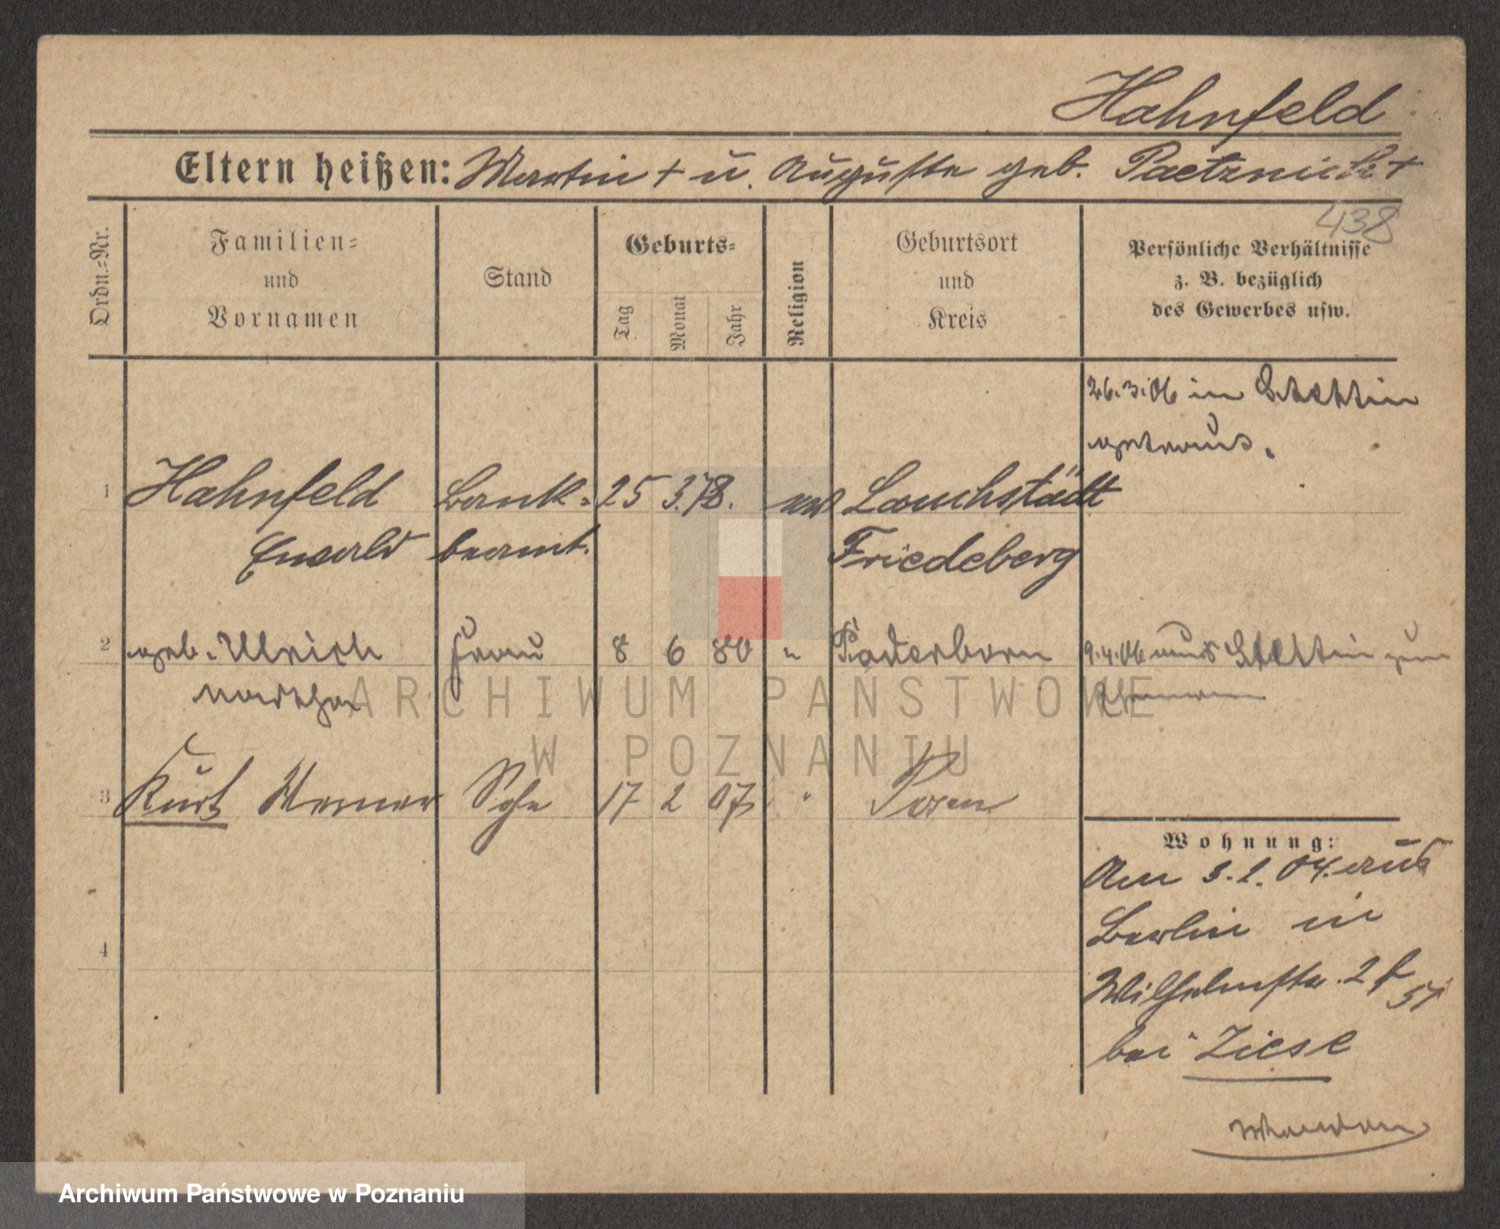 Hahnfeld
Eltern heißen: Martin + u. Auguste geb. Paetznick +
438
Ordn.-Nr.
Familien-
und
Vornamen
Stand
Geburts-
Tag
Monat
Jahr
Religion
Geburtsort
und
Kreis
Persönliche Verhältnisse
z. B. bezüglich
des Gewerbes usw.
26.3.06 in Stettin
getraut.
1 Hahnfeld Bank- 25 3. 78. ev Lauchstädt
Ewald beamt. Friedeberg
2 geb. Ulrich Frau 8 6 80 " Paderborn 9.4.06 aus Stettin zum
Martha Ehemann
3 Kurt Werner Sohn 17 2 07 " Posen
Wohnung:
Am 3.1.04. aus
Berlin in
Wilhelmstr. 2
bei Ziese
4
wenden
ARCHIWUM PAŃSTWOWE
W POZNANIU
Archiwum Państwowe w Poznaniu